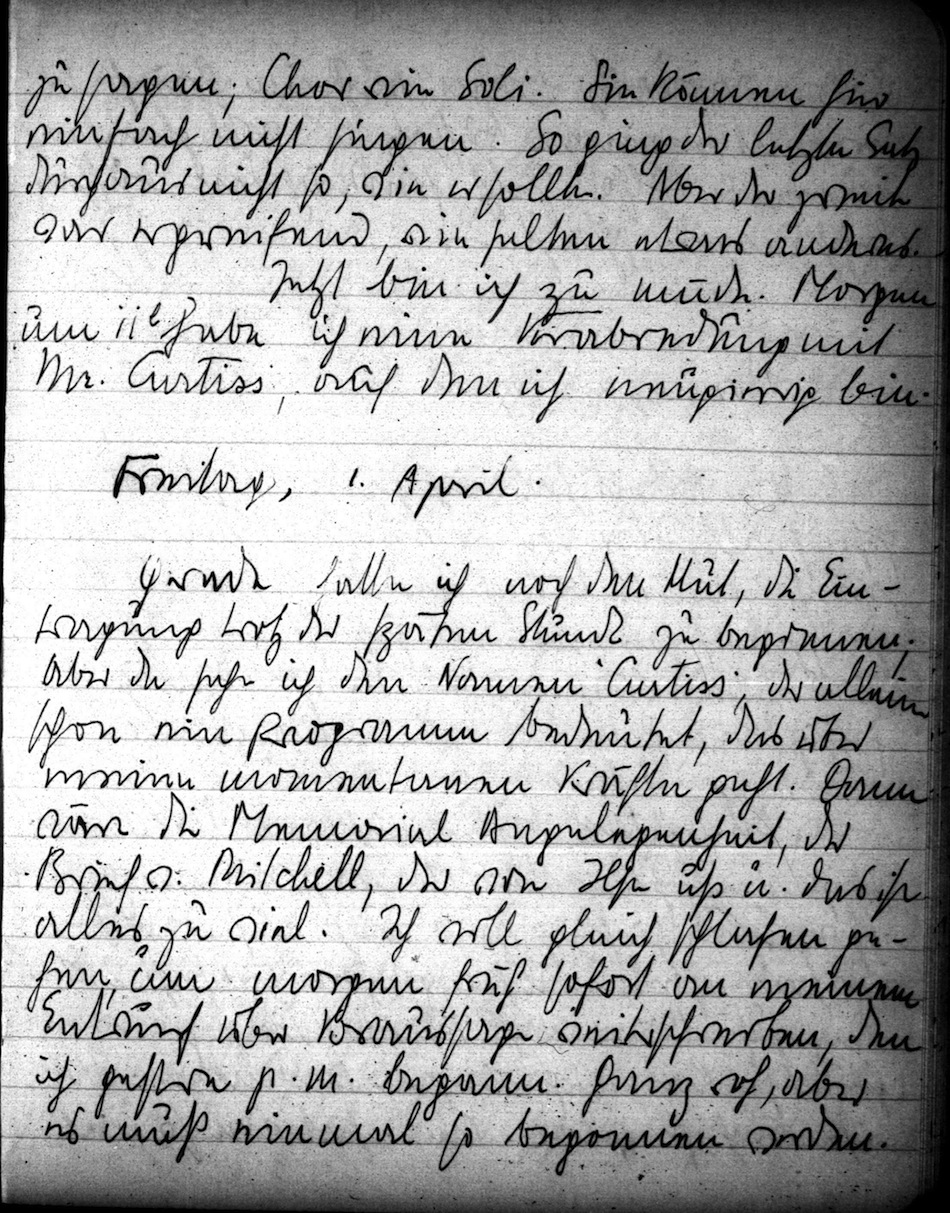 zu sagen; Chor wie Soli. Sie können hier
einfach nicht singen. So ging der letzte Satz
durchaus nicht so, wie er sollte. Aber der zweite
war ergreifend, wie selten etwas anderes.
Jetzt bin ich zu müde. Morgen
um 11h habe ich eine Verabredung mit
Mr. Curtiss, auf den ich neugierig bin.
Freitag, 1. April.
Gerade hatte ich noch den Mut, die Ein-
tragung trotz der späten Stunde zu beginnen;
aber da sehe ich den Namen Curtiss, der allein
schon ein Programm bedeutet, das über
meine momentanen Kräfte geht. Dann
wäre die Memorial Angelegenheit, der
Brief v. Mitchell, der von u. das ist
alles zu viel. Ich will gleich schlafen ge-
hen, um morgen früh sofort an meinem
Entwurf über Voraussage weiterschreiben, den
ich gestern p.m. begann. Ganz roh, aber
es muß einmal so begonnen werden.